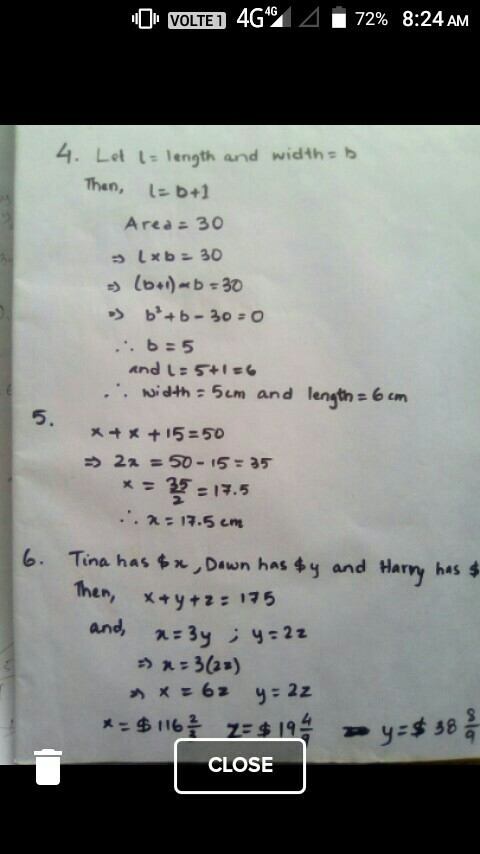 VOLTE 1 4G 4G 72% 8:24 AM
4. Let l = length and width = b
Then, l = b+1
Area = 30
⇒ l x b = 30
⇒ (b+1) x b = 30
⇒ b² + b - 30 = 0
∴ b = 5
and l = 5+1 = 6
∴ width = 5cm and length = 6 cm
5.
x + x + 15 = 50
⇒ 2x = 50 - 15 = 35
x = 35/2 = 17.5
∴ x = 17.5 cm
6. Tina has $x, Dawn has $y and Harry has $
Then, x + y + z = 175
and, x = 3y ; y = 2z
⇒ x = 3(2z)
⇒ x = 6z y = 2z
x = $ 116 2/3 z = $ 19 4/9 y = $ 38 8/9
CLOSE